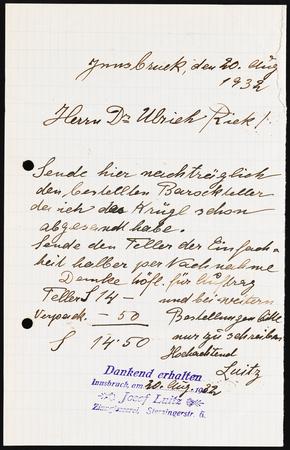 Innsbruck, den 20. Aug
1932
Herrn Dr Ulrich Riek!
Sende hier nachträglich
den bestellten Barockteller
da ich das Krügl schon
abgesandt habe.
Sende den Teller der Einfach-
heit halber per Nachnahme
Danke höfl. für Auftrg
Teller S 14 – und bei weitern
Verpack. – 50 Bestellungen bitte
nur zu schreiben
S 14·50 Hochachtend
Luitz
Dankend erhalten
Innsbruck, am 20. Aug. 1932
Josef Luitz
Zinngiesserei, Sterzingerstr. 6.